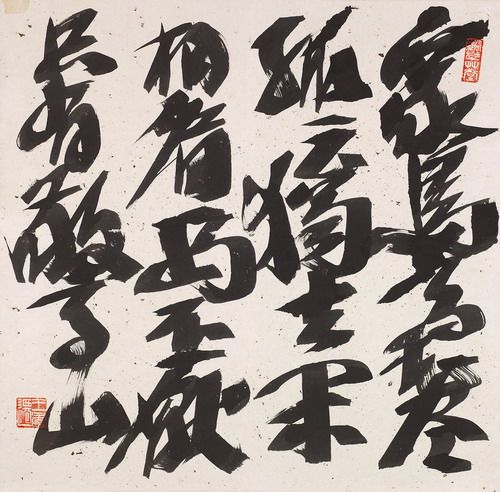 衆鳥高飛盡
孤云獨去閑
相看両不厭
只有敬亭山